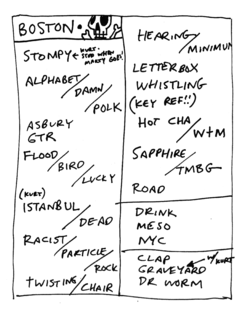 BOSTON.
STOMPY ← KURT-
STOP WHEN
MARTY GOES!
ALPHABET/
DAMN/
POLK
ASBURY
GTR
FLOOD/
BIRD/
LUCKY
(KURT)
ISTANBUL/
DEAD
RACIST/
PARTICLE/
ROCK
TWISTING/
CHAIR
HEARING/
MINIMUM
LETTERBOX
WHISTLING
(KEY REF!!)
HOT CHA/
W+M
SAPPHIRE/
TMBG
ROAD
DRINK
MESO
NYC
CLAP
GRAVEYARD ← W/KURT
DR WORM